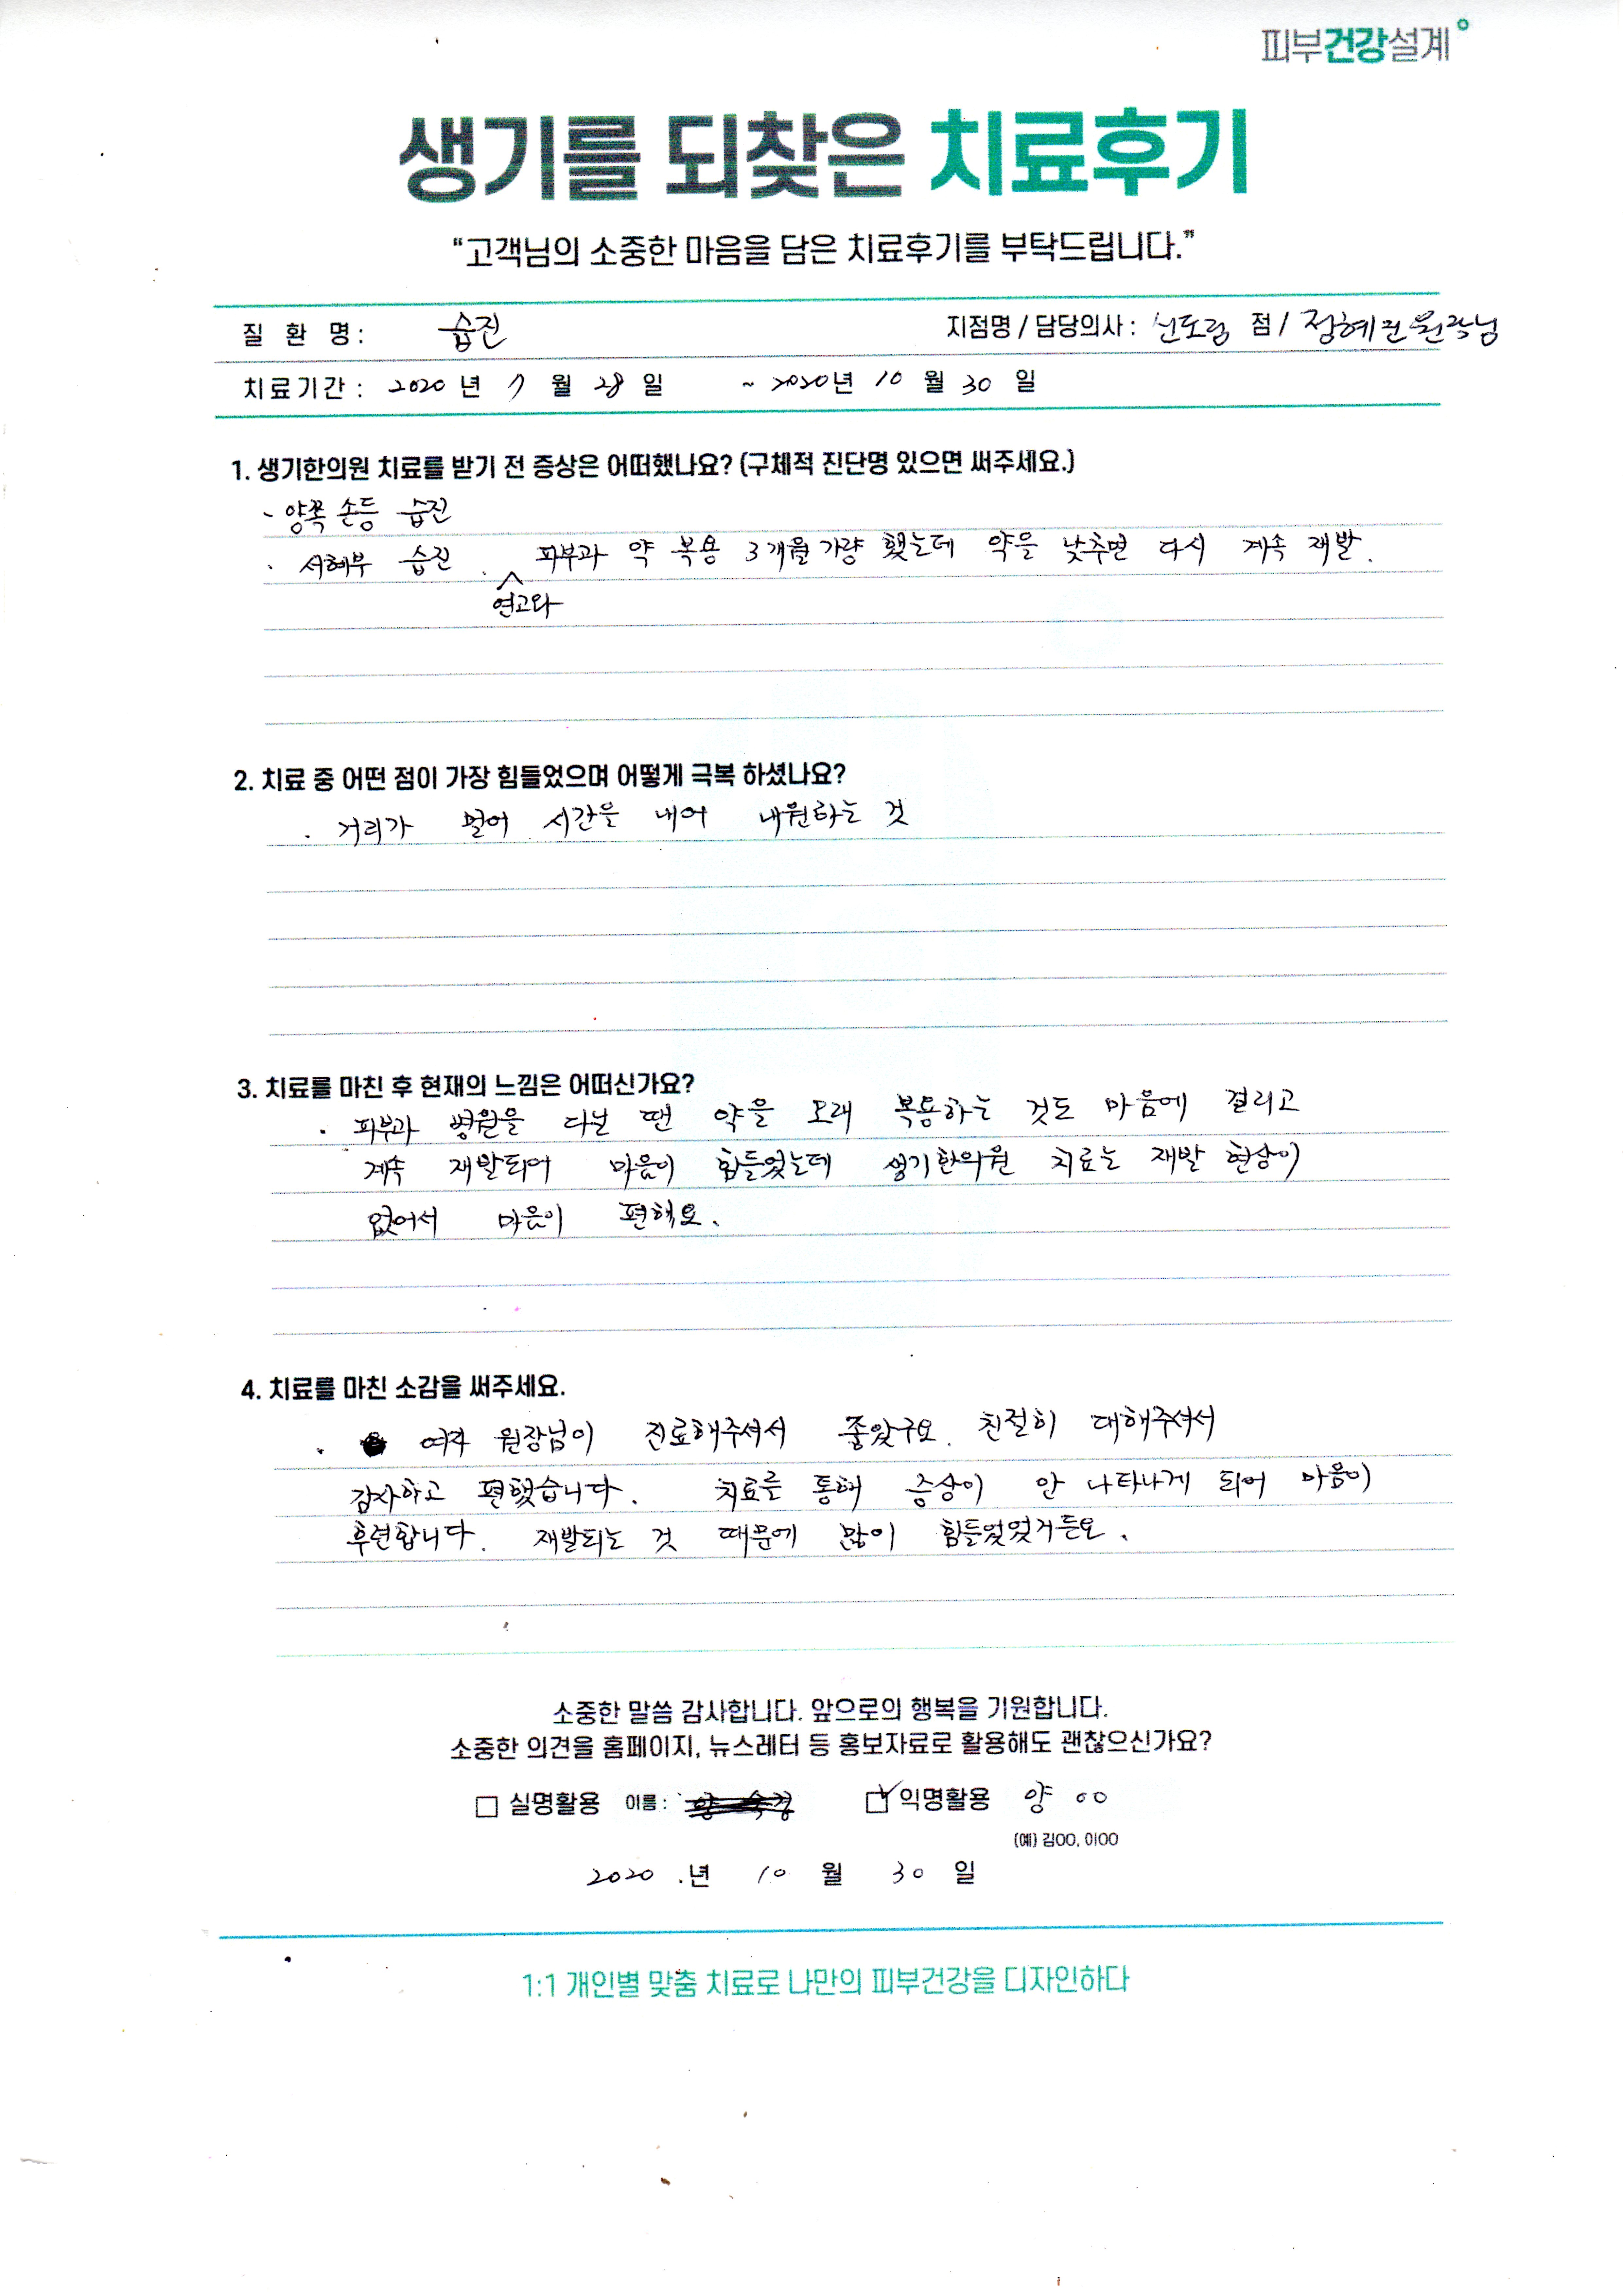 피부건강설계
생기를 되찾은 치료후기
“고객님의 소중한 마음을 담은 치료후기를 부탁드립니다.”
질 환 명 : 습진 지점명 / 담당의사 : 신도림 점 / 정혜진 원장님
치료기간 : 2020 년 7 월 28 일 ~ 2020년 10 월 30 일
1. 생기한의원 치료를 받기 전 증상은 어떠했나요? (구체적 진단명 있으면 써주세요.)
- 양쪽 손등 습진
· 서혜부 습진. 피부과 약 복용 3개월 가량 했는데 약을 낮추면 다시 계속 재발.
연고와
2. 치료 중 어떤 점이 가장 힘들었으며 어떻게 극복 하셨나요?
· 거리가 멀어 시간을 내어 내원하는 것
3. 치료를 마친 후 현재의 느낌은 어떠신가요?
· 피부과 병원을 다닐 땐 약을 오래 복용하는 것도 마음에 걸리고
계속 재발되어 마음이 힘들었는데 생기한의원 치료는 재발 현상이
없어서 마음이 편해요.
4. 치료를 마친 소감을 써주세요.
· 여자 원장님이 진료해주셔서 좋았구요. 친절히 대해주셔서
감사하고 편했습니다. 치료를 통해 증상이 안 나타나게 되어 마음이
후련합니다. 재발되는 것 때문에 많이 힘들었었거든요.
소중한 말씀 감사합니다. 앞으로의 행복을 기원합니다.
소중한 의견을 홈페이지, 뉴스레터 등 홍보자료로 활용해도 괜찮으신가요?
실명활용 이름 : 익명활용 양 00
(예) 김00, 이00
2020 . 년 10 월 30 일
1:1 개인별 맞춤 치료로 나만의 피부건강을 디자인하다